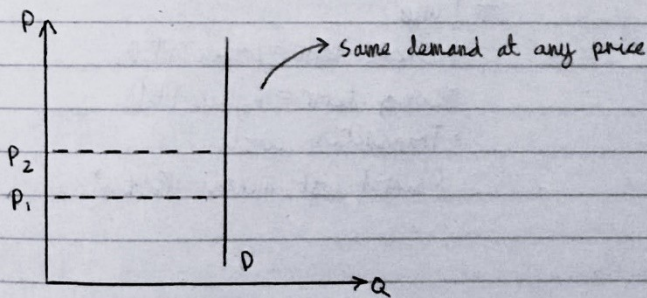 P
Same demand at any price
P2
P1
D
Q